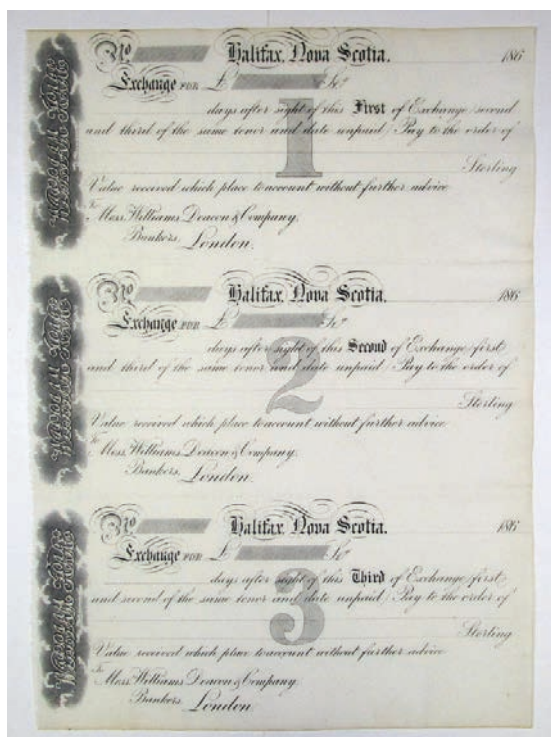 No Halifax, Nova Scotia. 186
Exchange FOR £ Stg
days after sight of this First of Exchange (second
and third of the same tenor and date unpaid) Pay to the order of
1
Sterling
Value received which place to account without further advice
To Mess. Williams Deacon & Company,
Bankers, London.
No Halifax, Nova Scotia. 186
Exchange FOR £ Stg
days after sight of this Second of Exchange (first
and third of the same tenor and date unpaid) Pay to the order of
2
Sterling
Value received which place to account without further advice
To Mess. Williams Deacon & Company,
Bankers, London.
No Halifax, Nova Scotia. 186
Exchange FOR £ Stg
days after sight of this Third of Exchange (first
and second of the same tenor and date unpaid) Pay to the order of
3
Sterling
Value received which place to account without further advice
To Mess. Williams Deacon & Company,
Bankers, London.